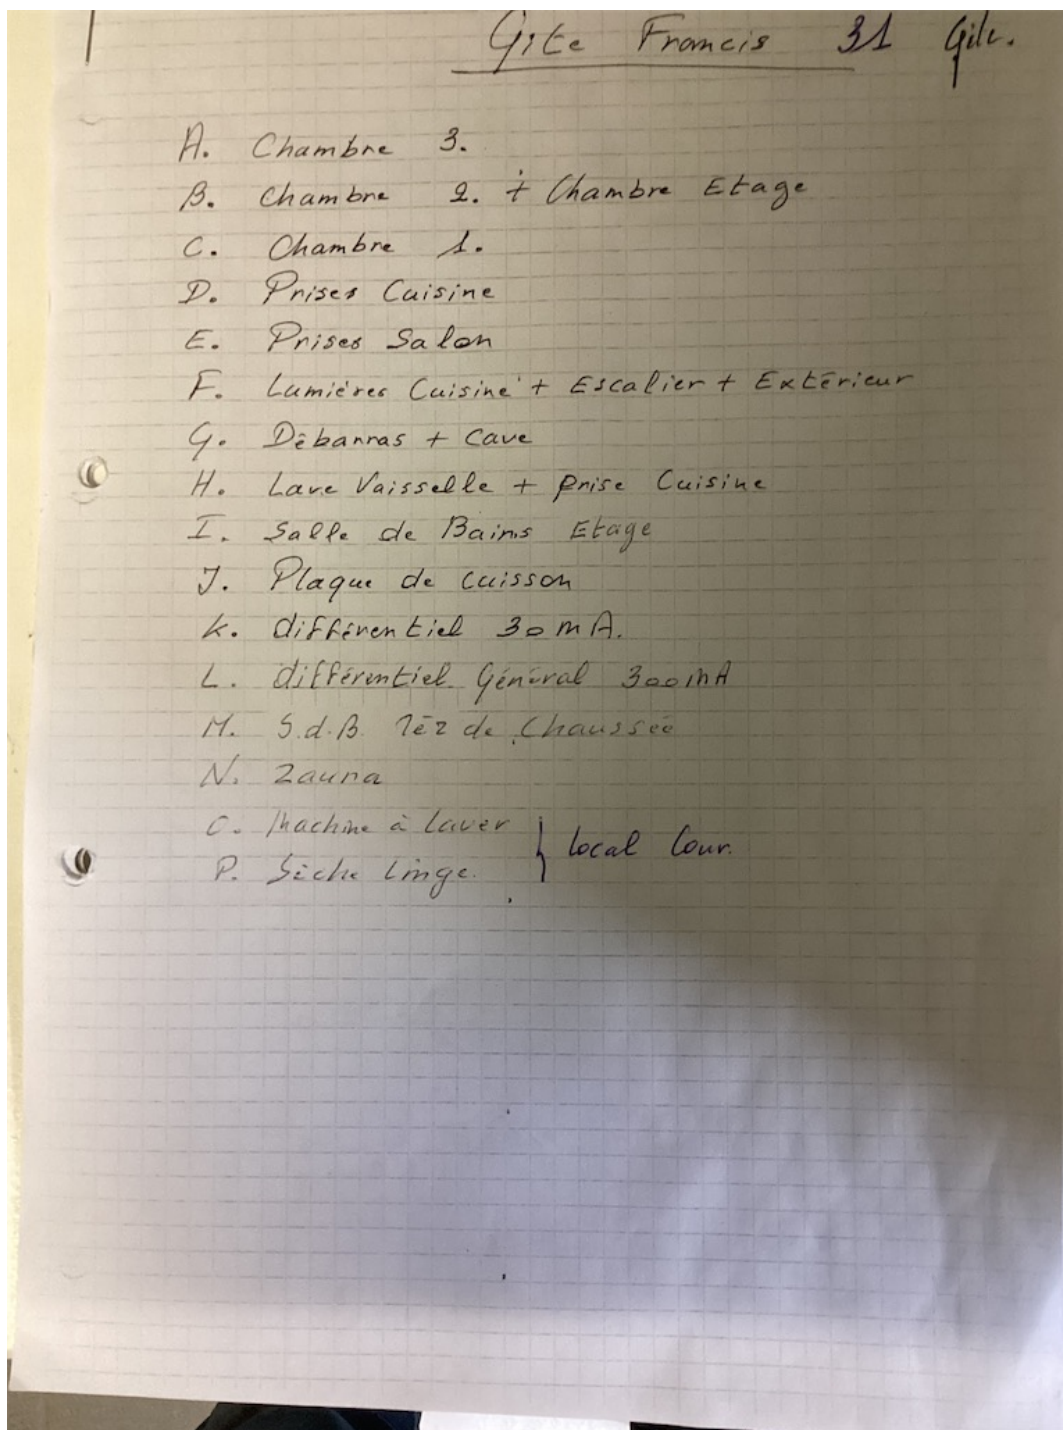 Gite Francis 31 Gite.
A. Chambre 3.
B. Chambre 2. + Chambre Etage
C. Chambre 1.
D. Prises Cuisine
E. Prises Salon
F. Lumières Cuisine + Escalier + Extérieur
G. Débarras + Cave
H. Lave Vaisselle + prise Cuisine
I. Salle de Bains Etage
J. Plaque de cuisson
K. différentiel 30 mA.
L. différentiel Général 300 mA
M. S.d.B. réz de Chaussée
N. Zauna
O. Machine à laver
P. Sèche Linge. } local Cour.